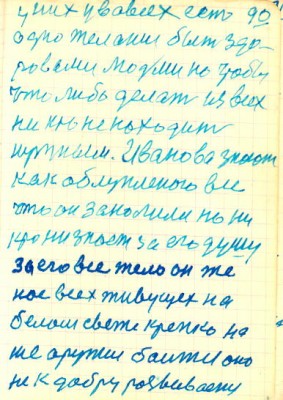 у них у вовсех есть 90
одно желание быт здо-
ровыми людми но чтобы
что либо делат из всех
ни кто не находит
нужным. Иванова знают
как облупленого все
что он закалили но ни
кто ни знает за его душу
за его все тело он же
ное всех живущех на
белом свете крепко на
ше оружие боитжи оно
не к добру розвиваеми